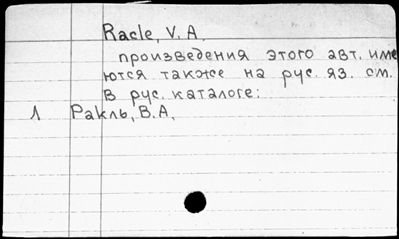 Racle, V. A.
произведения этого авт. име
ются также на рус. яз. см.
в рус. каталоге:
1 Ракль, В.А.